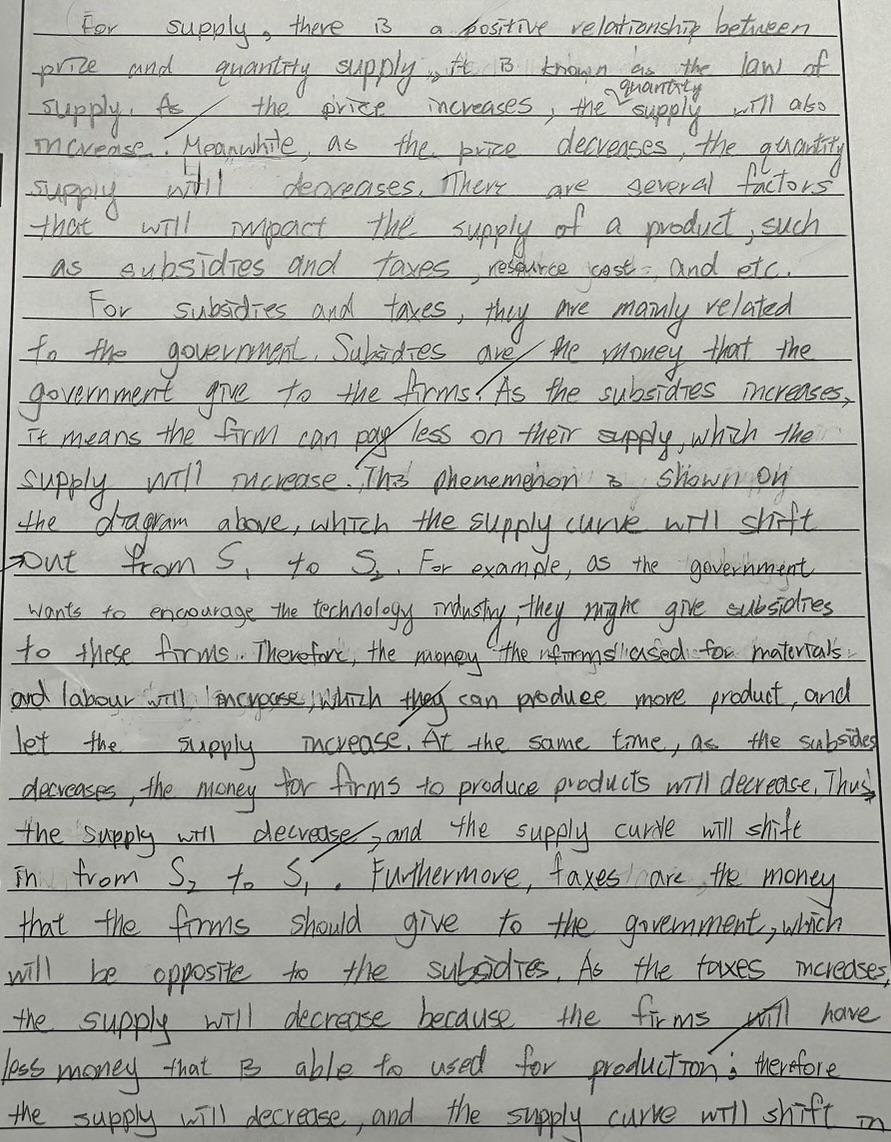 For supply, there is a positive relationship between
price and quantity supply, it is known as the law of
supply. As the price increases, the quantity supply will also
increase. Meanwhile, as the price decreases, the quantity
supply will decreases. There are several factors
that will impact the supply of a product, such
as subsidies and taxes, resource cost, and etc.
For subsidies and taxes, they are mainly related
to the government. Subsidies are the money that the
government give to the firms. As the subsidies increases,
it means the firm can pay less on their supply, which the
supply will increase. This phenemenon is shown on
the diagram above, which the supply curve will shift
out from S1 to S2. For example, as the government
wants to encourage the technology industry, they might give subsidies
to these firms. Therefore, the money the firms used for materials
and labour will increase, which they can produce more product, and
let the supply increase. At the same time, as the subsides
decreases, the money for firms to produce products will decrease. Thus,
the supply will decrease, and the supply curve will shift
in from S2 to S1. Furthermore, taxes are the money
that the firms should give to the government, which
will be opposite to the subsidies. As the taxes increases,
the supply will decrease because the firms will have
less money that is able to used for production; therefore
the supply will decrease, and the supply curve will shift in